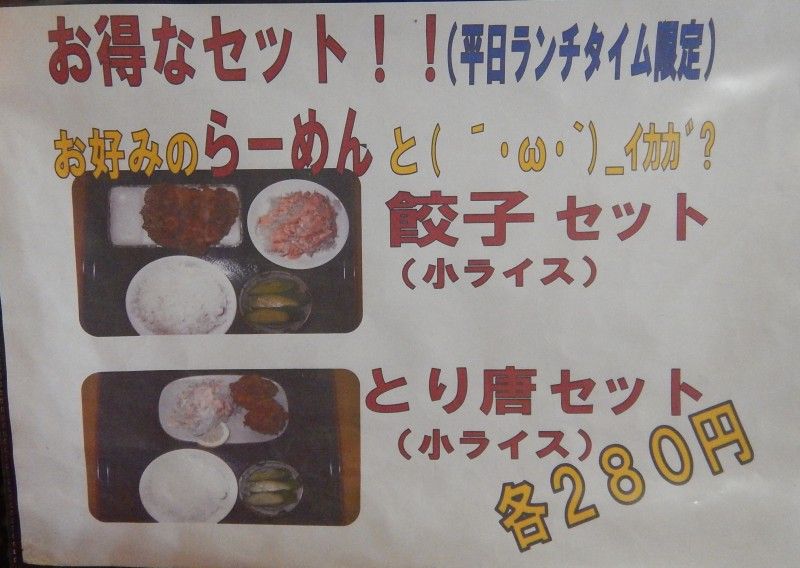 お得なセット！！(平日ランチタイム限定)
お好みのらーめんと( ´・ω・`)_ｲｶｶﾞ?
餃子セット
（小ライス）
とり唐セット
（小ライス）
各２８０円